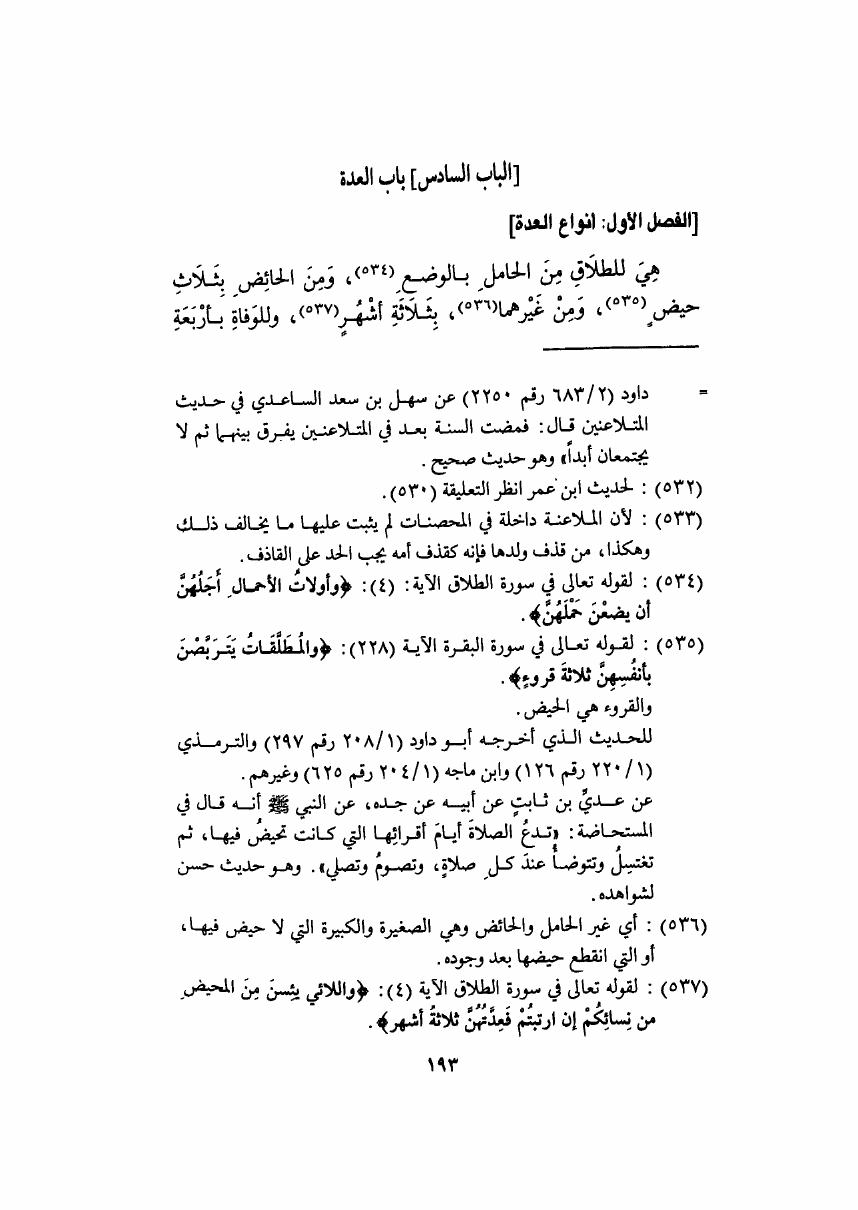 [الباب السادس] باب العدة
[الفصل الأول: انواع العدة]
هِيَ للطلَاقِ مِنَ الحامل ِ بـالوضـع ِ(٥٣٤)، وَمِنَ الحائِض ِ بِثَـلَاثِ
حيض ٍ(٥٣٥)، وَمِنْ غَيْرهما(٥٣٦)، بِثَـلَاثَةِ أشْهُـرٍ(٥٣٧)، وللوَفاةِ بـأرْبَعَةِ
= داود (٦٨٣/٢ رقم ٢٢٥٠) عن سهـل بن سعد الساعـدي في حـديث
المتـلاعنين قـال: فمضت السنة بعـد في المتـلاعنـين يفـرق بينهـما ثم لا
يجتمعان أبداً» وهو حديث صحيح.
(٥٣٢) : لحديث ابن عمر انظر التعليقة (٥٣٠).
(٥٣٣) : لأن المـلاعنـة داخلة في المحصنـات لم يثبت عليهـا مـا يخـالف ذلـك
وهكذا، من قذف ولدها فإنه كقذف أمه يجب الحد على القاذف.
(٥٣٤) : لقوله تعالى في سورة الطلاق الآية: (٤): ﴿وأولاتُ الأحمـال ِ أَجَلُهُنَّ
أن يضعْنَ حَمْلَهُنَّ﴾.
(٥٣٥) : لقـوله تعـالى في سورة البقـرة الآيـة (٢٢٨): ﴿والمُطَلَّقَـاتُ يَتَـرَبَّصْنَ
بأنفُسِهِنَّ ثلاثةَ قروءٍ﴾.
والقروء هي الحيض.
للحـديث الـذي أخـرجـه أبـو داود (٢٠٨/١ رقم ٢٩٧) والتـرمـذي
(٢٢٠/١ رقم ١٢٦) وابن ماجه (٢٠٤/١ رقم ٦٢٥) وغيرهم.
عن عـديِّ بن ثـابتٍ عن أبيـه عن جـده، عن النبي ﷺ أنـه قـال في
المستحـاضة: «تـدعُ الصلاةَ أيـامَ أقـرائِهـا التي كـانت تحيضُ فيهـا، ثم
تغتسِلُ وتتوضـأُ عندَ كـل ِ صلاةٍ، وتصـومُ وتصلي». وهـو حديث حسن
لشواهده.
(٥٣٦) : أي غير الحامل والحائض وهي الصغيرة والكبيرة التي لا حيض فيهـا،
أو التي انقطع حيضها بعد وجوده.
(٥٣٧) : لقوله تعالى في سورة الطلاق الآية (٤): ﴿واللائي يئسنَ مِنَ المحيض ِ
من نِسائِكُمْ إن ارتبتُمْ فَعِدَّتُهُنَّ ثلاثةُ أشهر﴾.
١٩٣